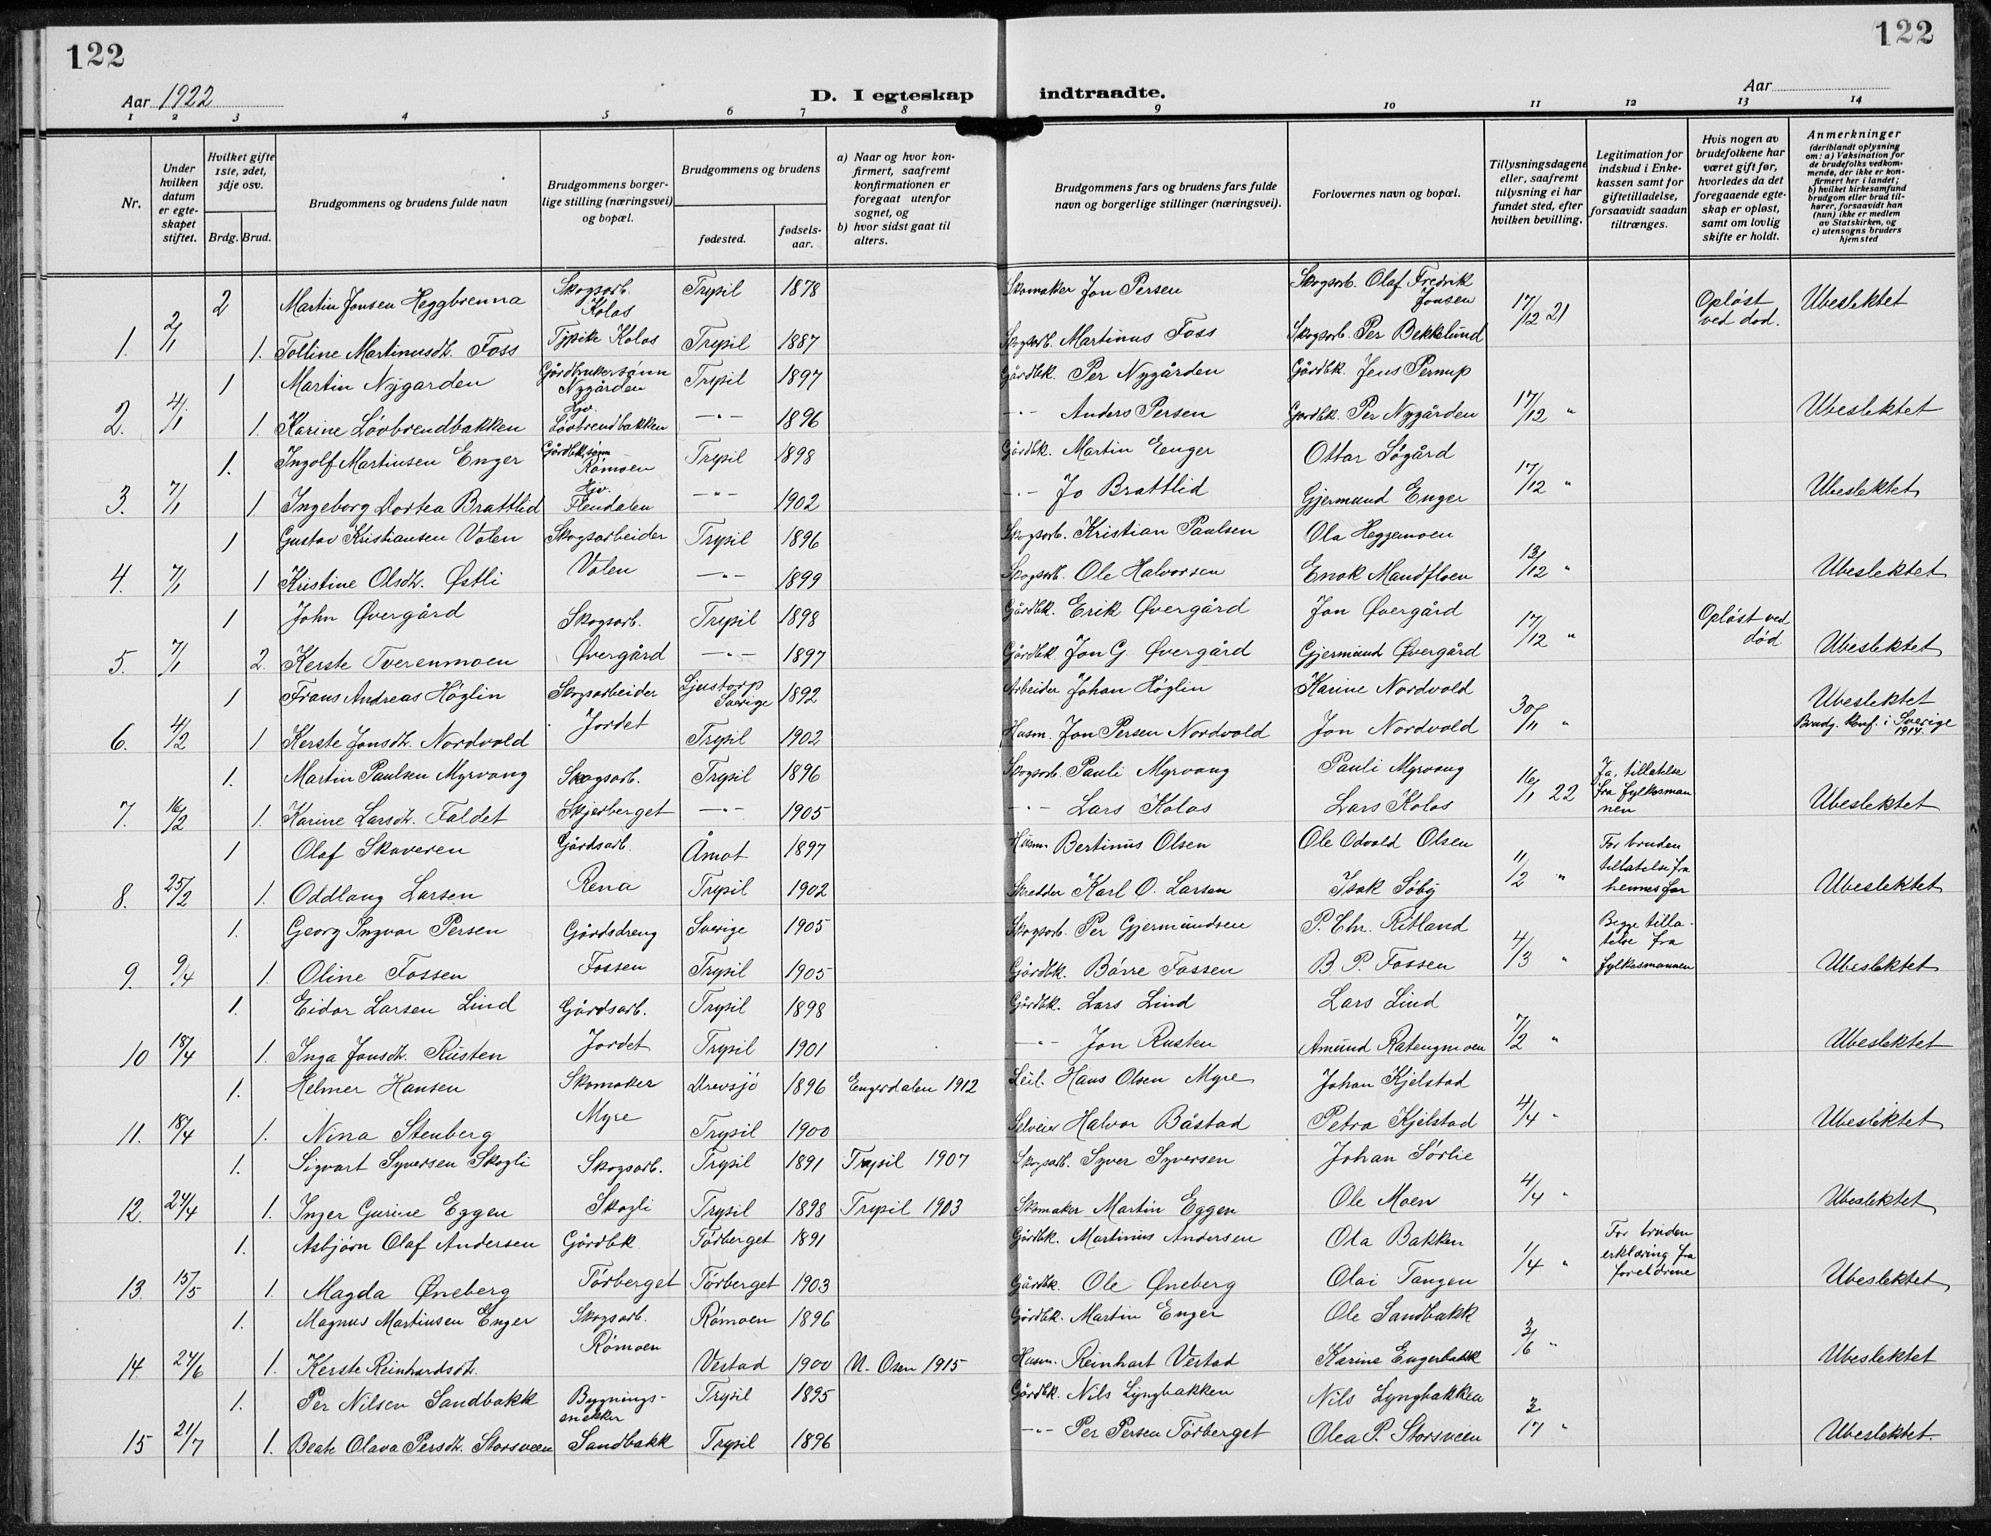 122
122
Aar 1922
D. I egteskap indtraadte.
Aar
1 2 3 4 5 6 7 8 9 10 11 12 13 14
Nr.
Under hvilken datum er egteskapet stiftet.
Hvilket gifte 1ste, 2det, 3dje osv.
Brdg. Brud.
Brudgommens og brudens fulde navn
Brudgommens borgerlige stilling (næringsvei) og bopæl.
Brudgommens og brudens
fødested.
fødselsaar.
a) Naar og hvor konfirmert, saafremt konfirmationen er foregaat utenfor sognet, og
b) hvor sidst gaat til alters.
Brudgommens fars og brudens fars fulde navn og borgerlige stillinger (næringsvei).
Forlovernes navn og bopæl.
Tillysningsdagene eller, saafremt tillysning ei har fundet sted, efter hvilken bevilling.
Legitimation for indskud i Enkekassen samt for giftetilladelse, forsaavidt saadan tiltrænges.
Hvis nogen av brudefolkene har været gift før, hvorledes da det foregaaende egteskap er opløst, samt om lovlig skifte er holdt.
Anmerkninger
(deriblandt oplysning om: a) Vaksination for de brudefolks vedkommende, der ikke er konfirmert her i landet; b) hvilket kirkesamfund brudgom eller brud tilhører, forsaavidt han (hun) ikke er medlem av Statskirken, og c) utensogns bruders hjemsted
2 Martin Jonsen Heggbrenna Skogsarb. Kolos Trysil 1878 Skomaker Jon Persen Skogsarb. Olaf Fredrik Jonsen 17/12 21 Opløst ved død. Ubeslektet
1. 2/1 1. Tolline Martinusdtr. Foss Tjpike Kolos Trysil 1887 Skogsarb. Martinus Foss Skogsarb. Per Bekklund
1 Martin Nygarden Gårdbrukersønn Nygården Trysil 1897 Gårdbk. Per Nygården Gårdbk. Jens Pernup
2. 4/1 1. Karine Løvbrendbakken Hjv. Løvbrendbakken -"- 1896 -"- Anders Persen Gardbk. Per Nygården 17/12 " Ubeslektet
1. Ingolf Martinsen Enger Gårdbk.sønn Rømoen Trysil 1898 Gårdbk. Martin Enger Ottar Søgård
3. 7/1 1 Ingeborg Dortea Brattlid Hjv. Flendalen -"- 1902 -"- Jo Brattlid Gjermund Enger 17/12 " Ubeslektet
1 Gustav Kristiansen Volen Skogsarbeider Trysil 1896 Skogsarb. Kristian Paulsen Ola Heggemoen
4. 7/1 1 Kristine Olsdtr. Østli Volen -"- 1899 Skogsarb. Ole Halvorsen Enok Mandfloen 13/12 " Ubeslektet
1 John Øvergård Skogsarb. Trysil 1898 Gårdbk. Erik Øvergård Jon Øvergård Opløst ved død
5. 7/1 2. Kerste Tverenmoen Øvergård -"- 1897 Gårdbk Jon G. Øvergård Gjermund Øvergård 17/12 " Ubeslektet
1 Frans Andreas Höglin Skogsarbeider Ljustorp Sverige 1892 Arbeider Johan Höglin Karine Nordvold Ubeslektet
6. 4/2 1 Kerste Jonsdtr. Nordvold Jordet Trysil 1902 Husm. Jon Persen Nordvold Jon Nordvold 30/11 " Brudg. konf. i Sverige 1914.
1. Martin Paulsen Myrvang Skogsarb. Trysil 1896 Skogsarb. Pauli Myrvang Pauli Myrvang Ja, tillatelse fra fylkesmannen
7. 16/2 1. Karine Larsdtr. Faldet Skjærberget -"- 1905 -"- Lars Kolos Lars Kolos 16/1 22 Ubeslektet
1 Olaf Skaveren Gårdsarb. Åmot 1897 Husm. Bertinus Olsen Ole Odvald Olsen For bruden tillatelse fra hennes far
8. 25/2 1. Oddlaug Larsen Rena Trysil 1902 Skredder Karl O. Larsen Isak Søby 11/2 " Ubeslektet
1. Georg Ingvar Persen Gårdsdreng Sverige 1905 Skogsarb. Per Gjermundsen P. Chr. Ritland Begge tillatelse fra fylkesmannen
9. 9/4 1. Oline Fossen Fossen Trysil 1905 Gårdbk. Børre Fossen B P. Fossen 4/3 " Ubeslektet
1. Eidar Larsen Lind Gårdsarb. Trysil 1898 Gårdbk. Lars Lind Lars Lind
10 18/4 1. Inga Jonsdtr. Rusten Jordet Trysil 1901 -"- Jon Rusten Amund Ratengmoen 7/2 " Ubeslektet
1. Helmer Hansen Skomaker Drevsjø 1896 Engerdalen 1912 Leil. Hans Olsen Myre Johan Kjelstad
11. 18/4 1. Nina Stenberg Myre Trysil 1900 Selveier Halvor Båstad Petra Kjelstad 4/4 " Ubeslektet
1. Sigvart Syversen Skogli Skogsarb. Trysil 1891 Trysil 1907 Skogsarb. Syver Syversen Johan Sørlie
12. 24/4 1. Inger Gurine Eggen Skogli Trysil 1898 Trysil 1903 Skomaker Martin Eggen Ole Moen 4/4 " Ubeslektet
1. Asbjørn Olaf Andersen Gårdbk Tørberget 1891 Gårdbk. Martinus Andersen Ola Bakken For bruden erklæring fra foreldrene
13. 15/5 1. Magda Øneberg Tørberget Tørberget 1903 Gårdbk. Ole Øneberg Olai Tangen 1/4 " Ubeslektet
1. Magnus Martinsen Enger Skogsarb. Rømoen 1896 Gårdbk. Martin Enger Ole Sandbakk
14 24/6 1. Kerste Reinhardsdtr. Rømoen Vestad 1900 N. Osen 1915 Husm. Reinhart Vestad Karine Engerbakk 3/6 " Ubeslektet
1. Per Nilsen Sandbakk Bygningssnekker Trysil 1895 Gårdbk. Nils Lyngbakken Nils Lyngbakken
15 21/7 1. Beate Olava Persdtr. Storsveen Sandbakk Trysil 1896 -"- Per Persen Tørberget Olea P. Storsveen 2 17 " Ubeslektet.